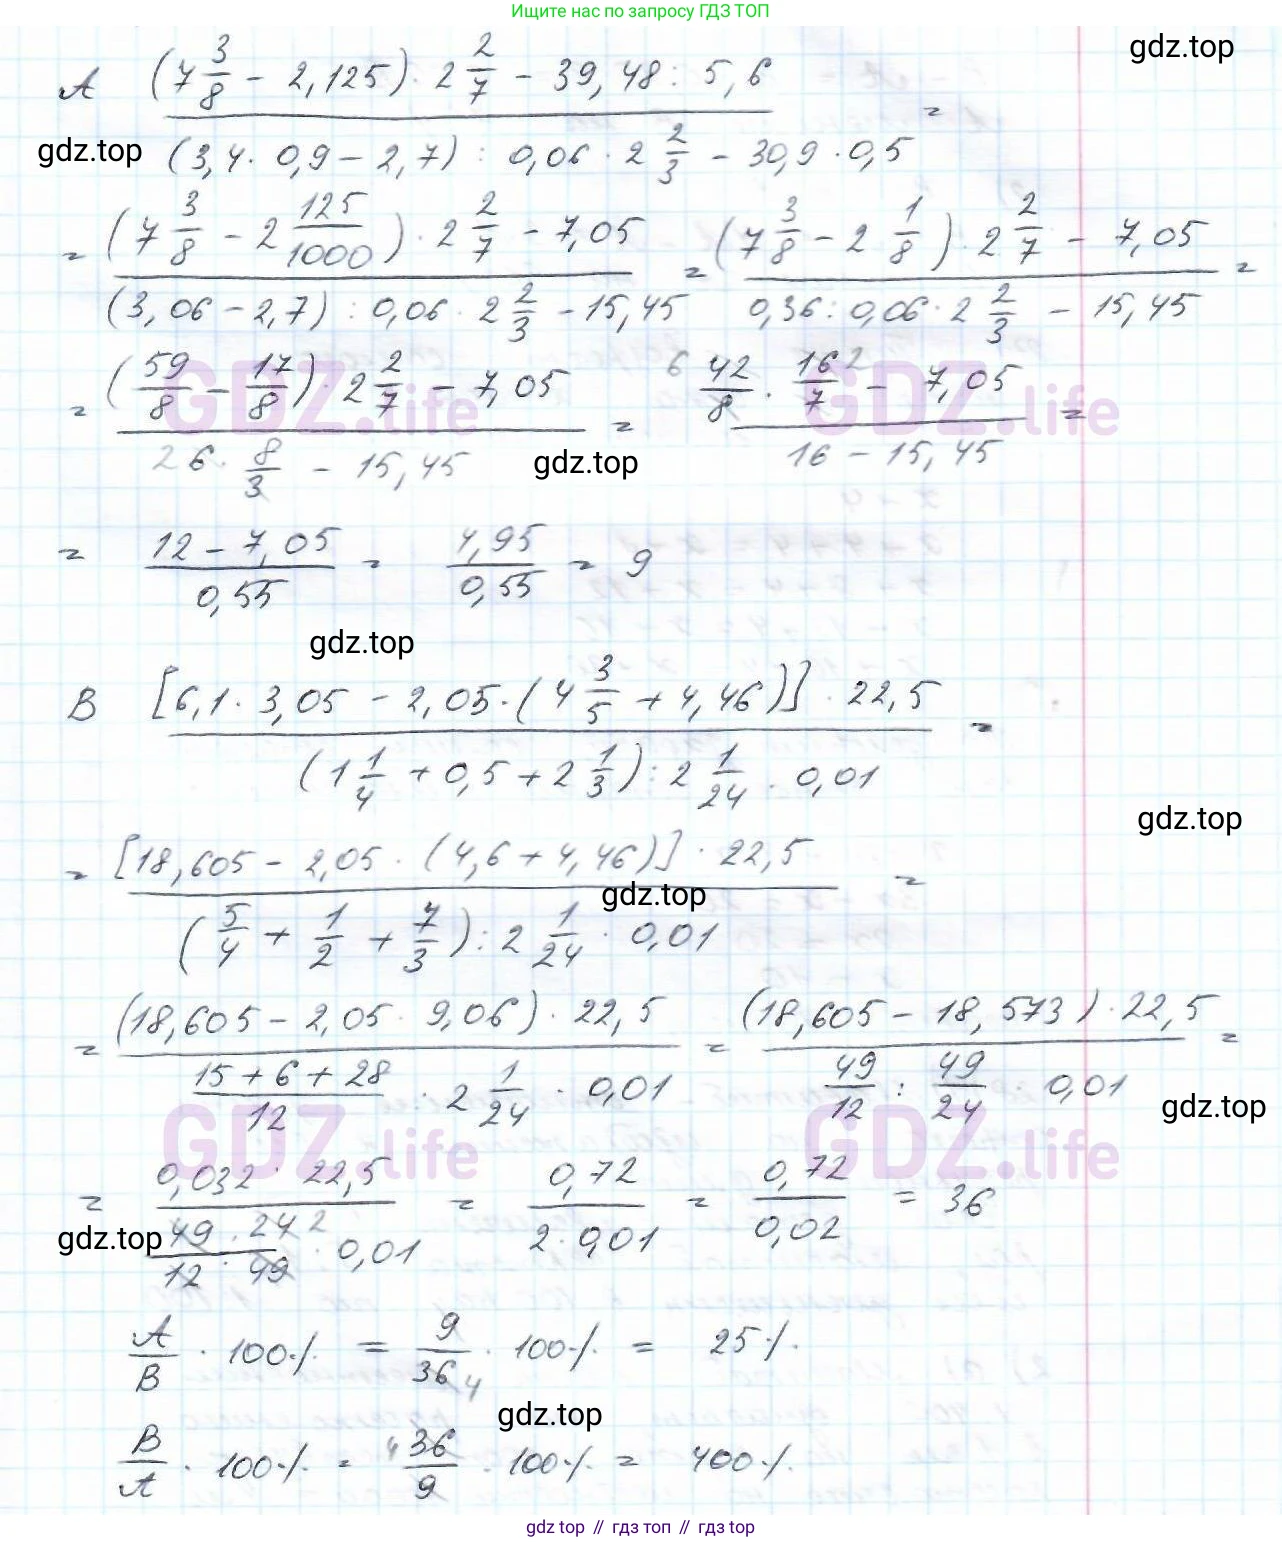 Ищите нас по запросу ГДЗ ТОП
gdz.top
A ((7 3/8 - 2,125) · 2 2/7 - 39,48 : 5,6) / ((3,4 · 0,9 - 2,7) : 0,06 · 2 2/3 - 30,9 · 0,5) =
gdz.top
= ((7 3/8 - 2 125/1000) · 2 2/7 - 7,05) / ((3,06 - 2,7) : 0,06 · 2 2/3 - 15,45) = ((7 3/8 - 2 1/8) · 2 2/7 - 7,05) / (0,36 : 0,06 · 2 2/3 - 15,45) =
= ((59/8 - 17/8) · 2 2/7 - 7,05) / (2 6 · 8/3 - 15,45) = (6 42/8 · 16 2/7 - 7,05) / (16 - 15,45) =
GDZ.life GDZ.life
gdz.top
= (12 - 7,05) / 0,55 = 4,95 / 0,55 = 9
gdz.top
B ([6,1 · 3,05 - 2,05 · (4 3/5 + 4,46)] · 22,5) / ((1 1/4 + 0,5 + 2 1/3) : 2 1/24 · 0,01) =
gdz.top
= ([18,605 - 2,05 · (4,6 + 4,46)] · 22,5) / ((5/4 + 1/2 + 7/3) : 2 1/24 · 0,01) =
gdz.top
= ((18,605 - 2,05 · 9,06) · 22,5) / ((15 + 6 + 28)/12 : 2 1/24 · 0,01) = ((18,605 - 18,573) · 22,5) / (49/12 : 49/24 · 0,01) =
gdz.top
GDZ.life GDZ.life
= (0,032 · 22,5) / (49/12 · 24 2/49 · 0,01) = 0,72 / (2 · 0,01) = 0,72 / 0,02 = 36
gdz.top
A/B · 100% = 9/36 4 · 100% = 25%.
gdz.top
B/A · 100% = 4 36/9 · 100% = 400%.
gdz top // гдз топ // гдз top